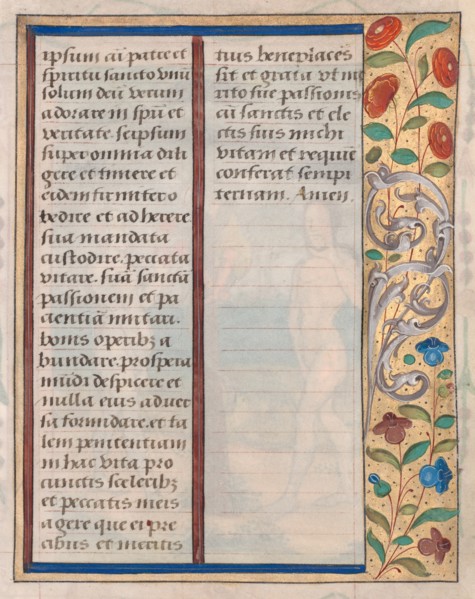 ipsum cū patre et
spiritu sancto vnū
solum deū verum
adorare in spū et
veritate. seipsum
super omnia dili
gere et timere et
eidem firmitero
bedire et ad herere.
sua mandata
custodire. peccata
vitare. suā sanctā
passionem et pa
cientiā imitari.
bonis operibꝫ a
bundare. prospera
mūdi despicere et
nulla eius aduer
sa formidare. et ta
lem penitentiam
in hac vita pro
cunctis sceleribꝫ
et peccatis meis
agere que ei pre
cibus et meritis
tius beneplacēs
sit et grata vt me
rito sue passionis
cū sanctis et ele
ctis suis michi
vitam et requiē
conferat sempi
ternam. Amen.